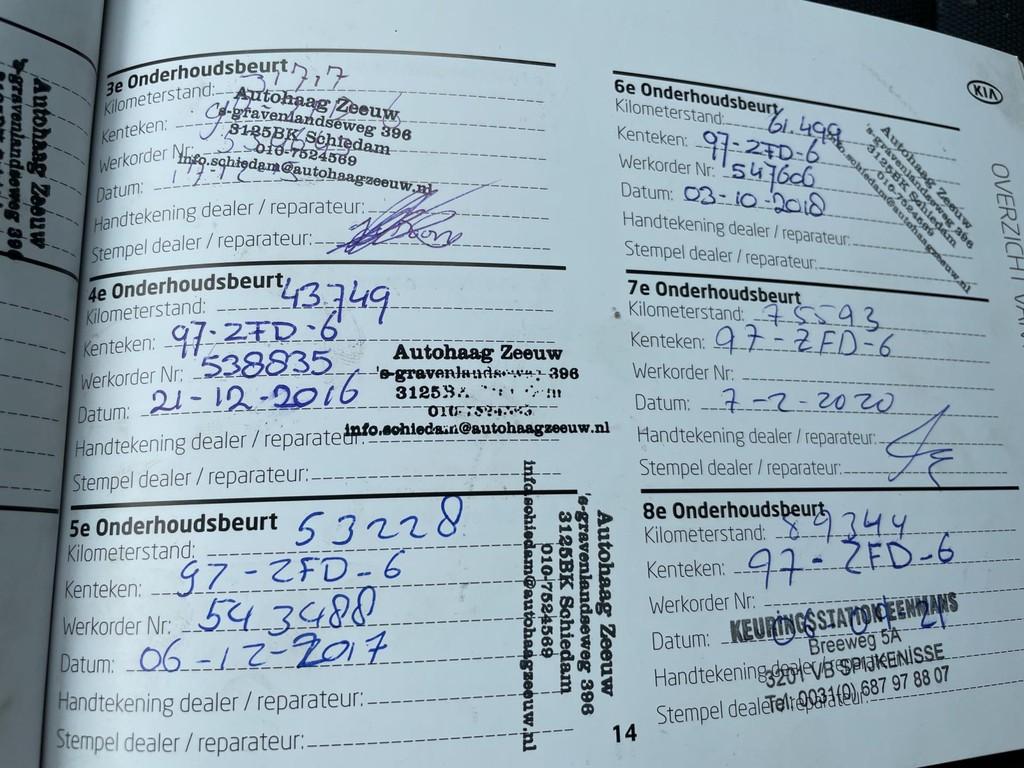 3e Onderhoudsbeurt
Kilometerstand:
Kenteken:
Werkorder Nr:
Datum:
Handtekening dealer / reparateur:
Stempel dealer / reparateur:
Autohaag Zeeuw
's-gravenlandseweg 396
3125BK Schiedam
010-7524569
info.schiedam@autohaagzeeuw.nl
4e Onderhoudsbeurt
Kilometerstand: 43.749
Kenteken: 97-ZFD-6
Werkorder Nr: 538835
Datum: 21-12-2016
Handtekening dealer / reparateur:
Stempel dealer / reparateur:
Autohaag Zeeuw
's-gravenlandseweg 396
info.schiedam@autohaagzeeuw.nl
5e Onderhoudsbeurt
Kilometerstand: 53228
Kenteken: 97-ZFD-6
Werkorder Nr: 543488
Datum: 06-12-2017
Handtekening dealer / reparateur:
Stempel dealer / reparateur:
Autohaag Zeeuw
's-gravenlandseweg 396
3125BK Schiedam
010-7524569
info.schiedam@autohaagzeeuw.nl
6e Onderhoudsbeurt
Kilometerstand: 61.499
Kenteken: 97-ZFD-6
Werkorder Nr: 547606
Datum: 03-10-2018
Handtekening dealer / reparateur:
Stempel dealer / reparateur:
Autohaag Zeeuw
's-gravenlandseweg 396
3125BK Schiedam
010-7524569
info.schiedam@autohaagzeeuw.nl
7e Onderhoudsbeurt
Kilometerstand: 75593
Kenteken: 97-ZFD-6
Werkorder Nr:
Datum: 7-2-2020
Handtekening dealer / reparateur:
Stempel dealer / reparateur:
8e Onderhoudsbeurt
Kilometerstand: 89344
Kenteken: 97-ZFD-6
Werkorder Nr:
Datum:
Handtekening dealer / reparateur:
Stempel dealer / reparateur:
KEURINGSSTATION EENMANS
Breeweg 5A
3201 VB SPIJKENISSE
Tel: 0031(0) 687 97 88 07
14
KIA
OVERZICHT
Autohaag Zeeuw
's-gravenlandseweg 396